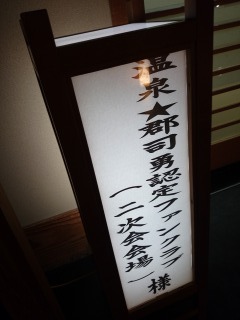 温泉★郡司勇認定ファンクラブ
(二次会会場)様